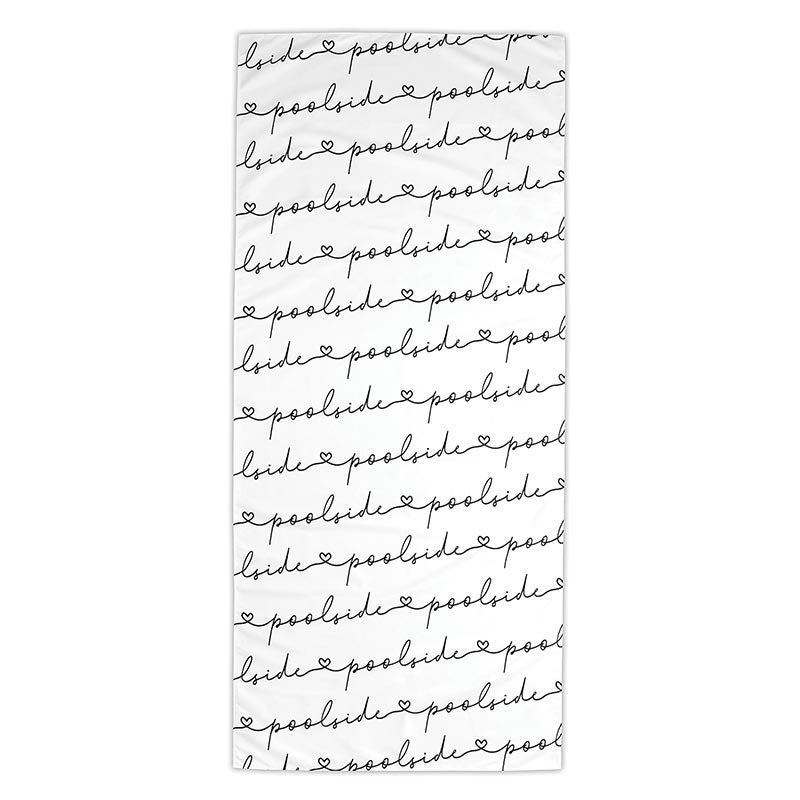 lside♡poolside♡poo
♡poolside♡poolside♡
lside♡poolside♡pool
♡poolside♡poolside♡
lside♡poolside♡pool
♡poolside♡poolside♡
lside♡poolside♡pool
♡poolside♡poolside♡
lside♡poolside♡pool
♡poolside♡poolside♡
lside♡poolside♡pool
♡poolside♡poolside♡
lside♡poolside♡pool
♡poolside♡poolside♡
lside♡poolside♡pool